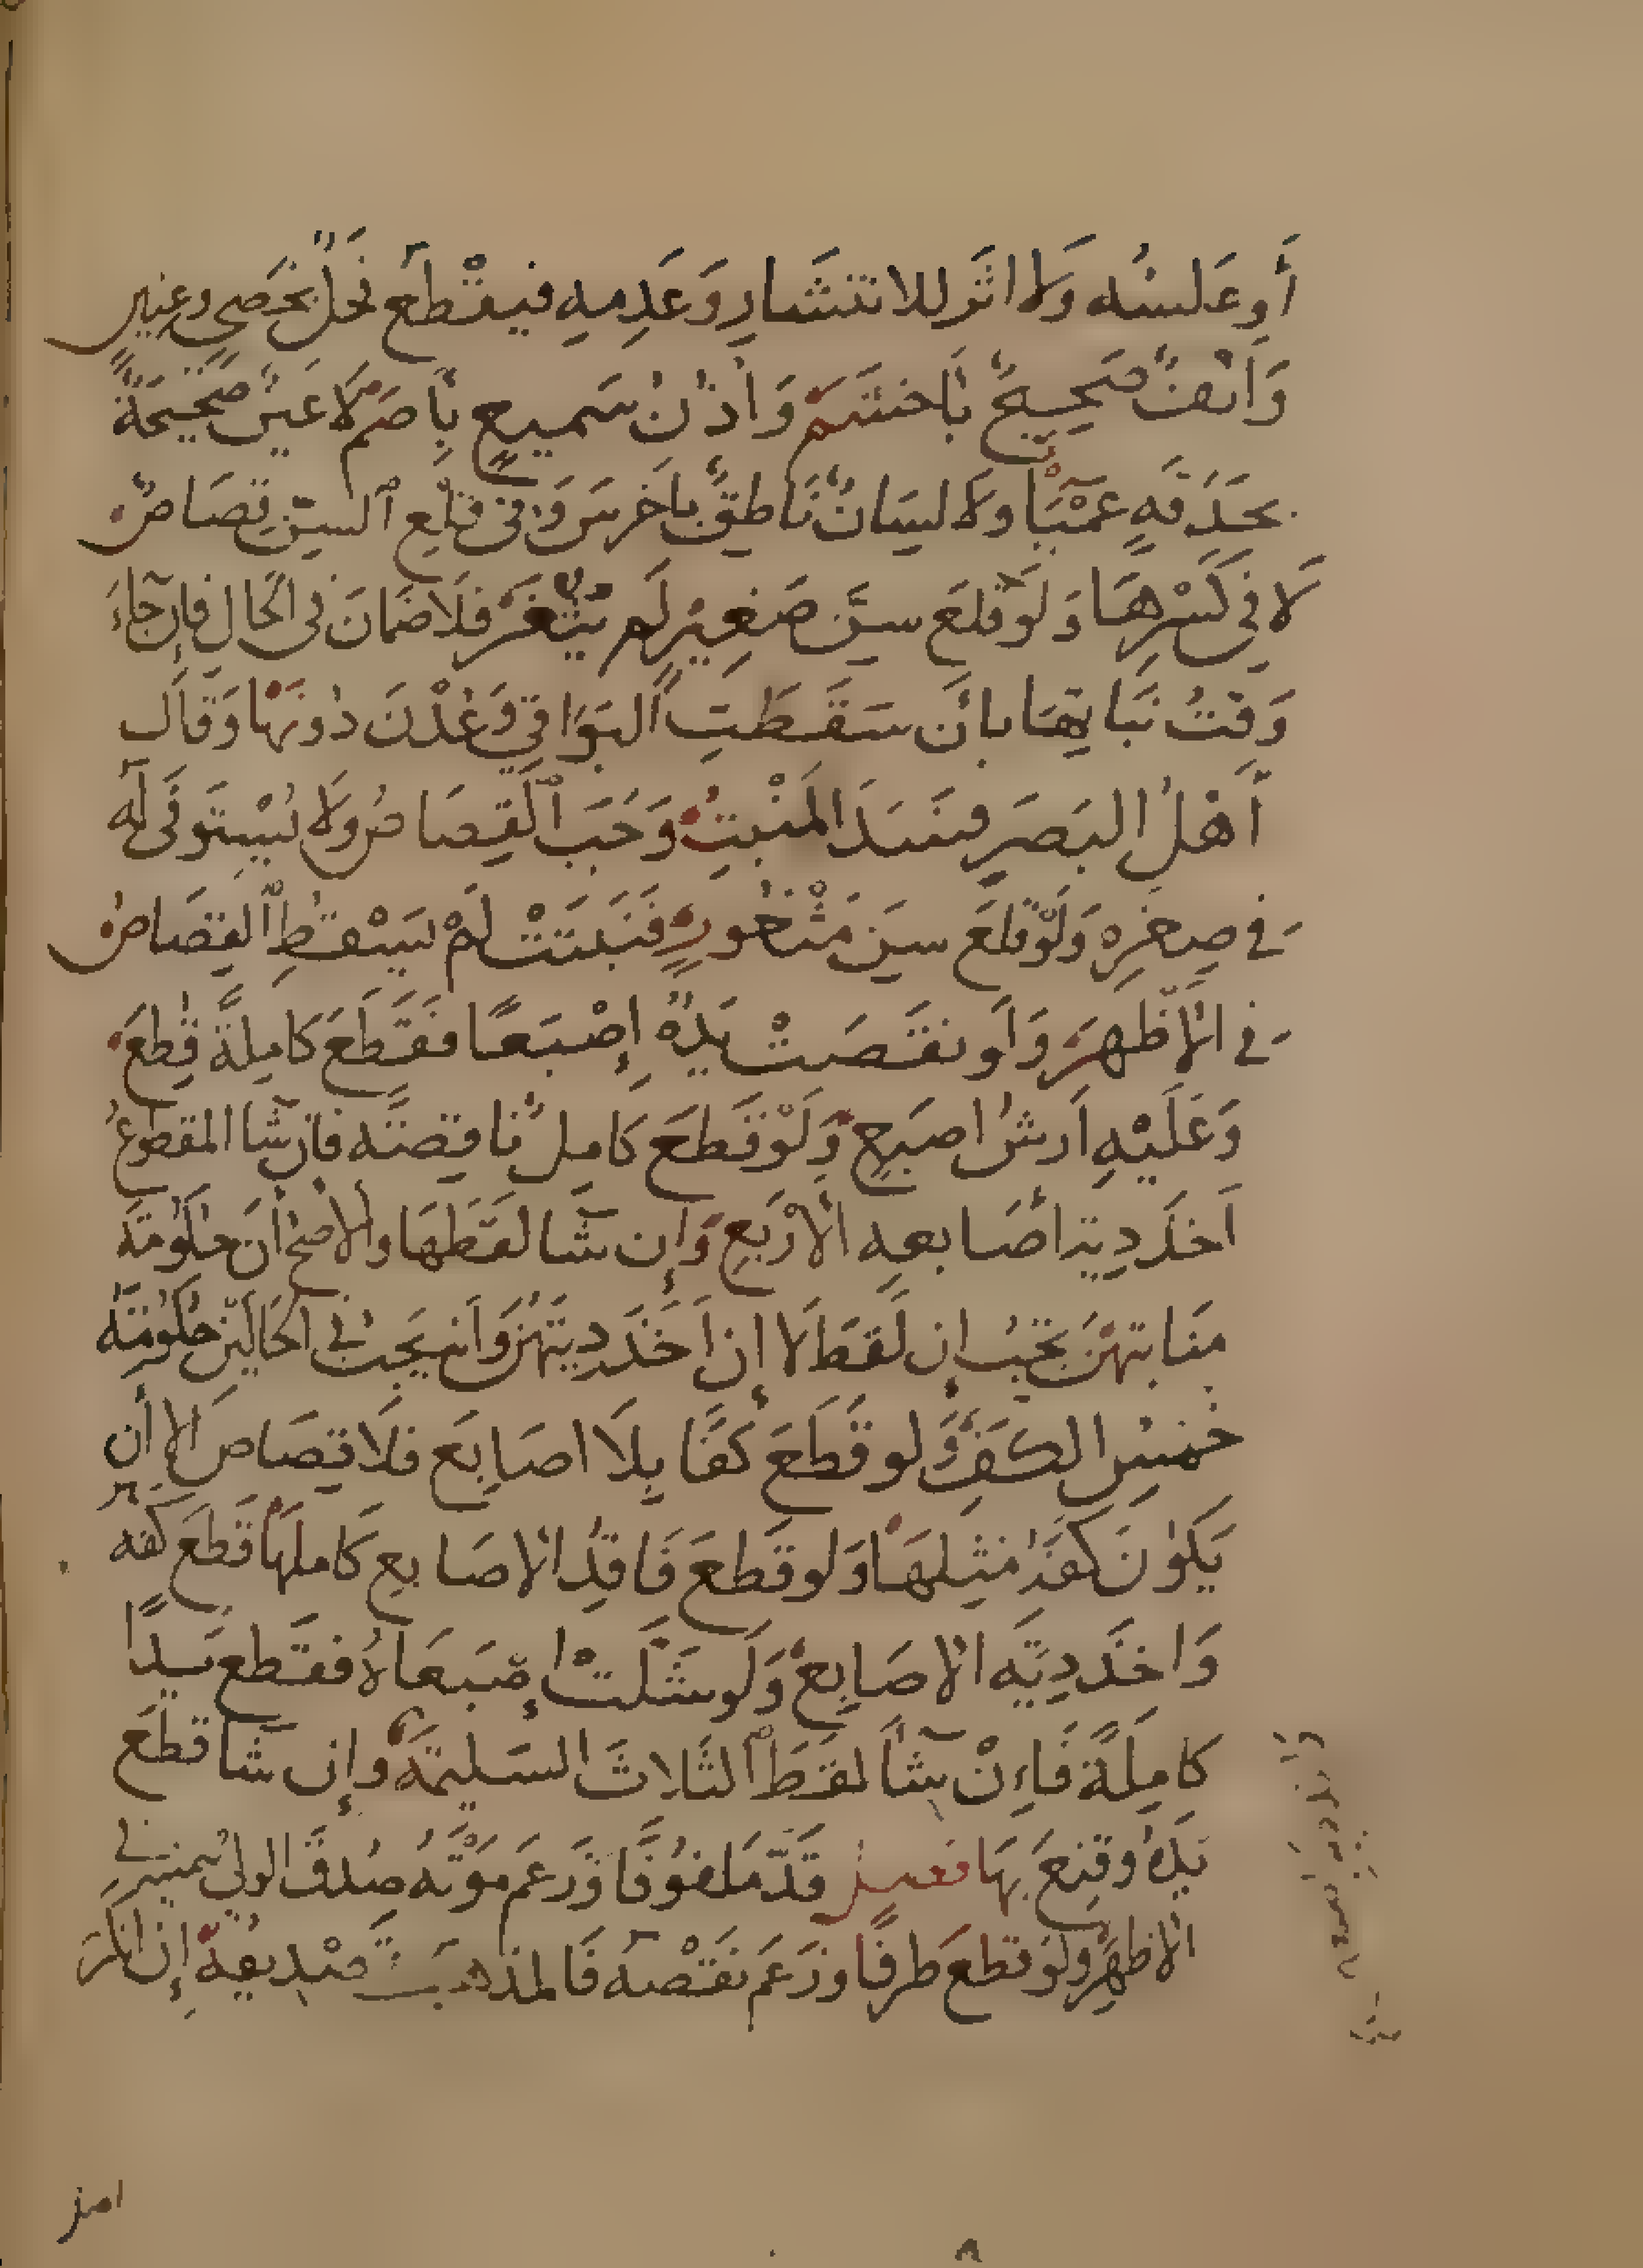 أو عكسه ولا اثر للانتشار وعدمه فيقطع فحل بخصي وعنين
وأنف صحيح بأخشم وأذن سميع بأصم لا عين صحيحة
بحدقة عميا ولا لسان ناطق باخرس وفي قلع السن قصاص
لا في كسرها ولو قلع سن صغير لم يثغر فلا ضمان في الحال فإن جاء
وقت نباتها بأن سقطت البواقي وعدن دونها وقال
أهل البصر فسد المنبت وجب القصاص ولا يستوفى له
في صغره ولو قلع سن مثغور فنبتت لم يسقط القصاص
في الاظهر ولو نقصت يده إصبعا فقطع كاملة قطع
وعليه ارش اصبع ولو قطع كامل ناقصته فان شا المقطوع
اخذ دية أصابعه الأربع وإن شا لقطها والاصح أن حكومة
منابتهن تجب إن لقط لا إن اخذ ديتهن وانه يجب في الحالين حكومة
خمس الكف ولو قطع كفا بلا اصابع فلا قصاص إلا أن
يكون كفه مثلها ولو قطع فاقد الاصابع كاملها قطع كفه
واخذ دية الاصابع ولو شلت إصبعاه فقطع يدا
كاملة فإن شا لقط الثلاث السليمة وإن شا قطع
يده وقنع بها فصل قد ملفوفا وزعم موته صدق الولي بيمينه في
الاظهر ولو قطع طرفا وزعم نقصه فالمذهب تصديقه إن انكر